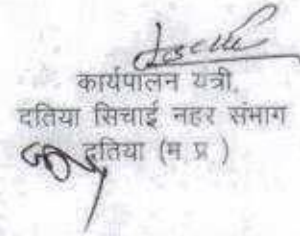 कार्यपालन यंत्री,
दतिया सिचाई नहर संभाग
दतिया (म प्र )